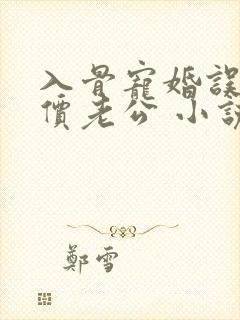 入骨寵婚誤
價老公 小說
鄭雪